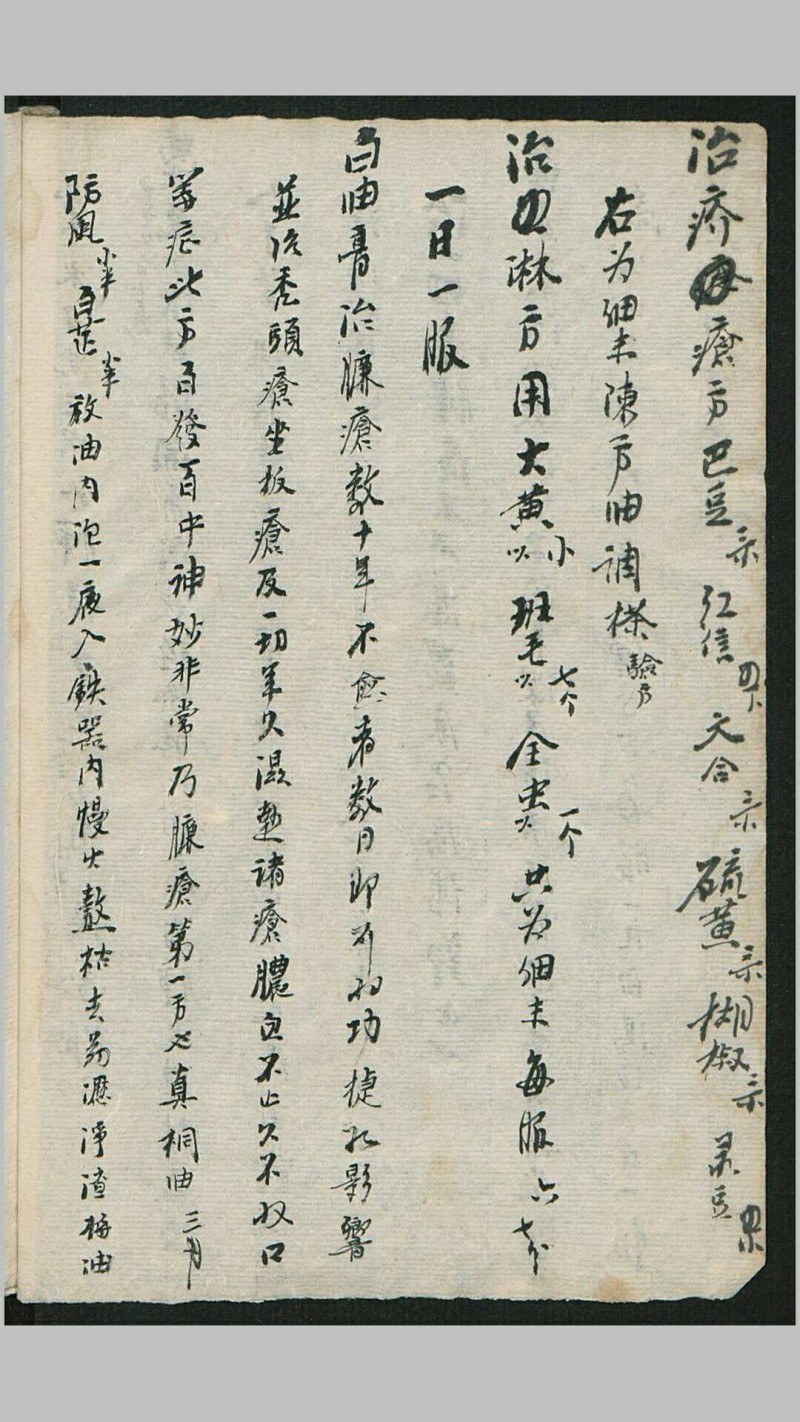 治疥瘡方巴豆 紅信 文合 硫黄 椒 豆
右为細末陳方油調搽 驗方
治淋方用大黄 小 班毛 七个 全虫 一个 共为細末每服六七分
一日一服
白油膏治臁瘡数十年不愈者数日即 功捷 影響
並治秃頭瘡坐板瘡及一切年久濕 諸瘡膿血不止久不收口
等症此方百發百中神妙非常乃臁瘡第一方也真桐油 三
防風 白芷 放油内泡一夜入鉄器内慢火熬枯去 瀝净渣 油